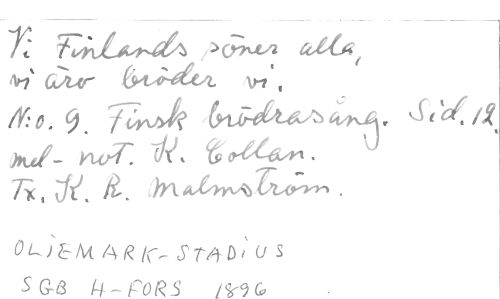 Vi Finlands söner alla,
vi äro bröder vi.
N:o. 9. Finsk brödrasång. Sid. 12.
mel-not. K. Collan.
Tx. K. R. Malmström.
OLIEMARK-STADIUS
SGB H-FORS 1896